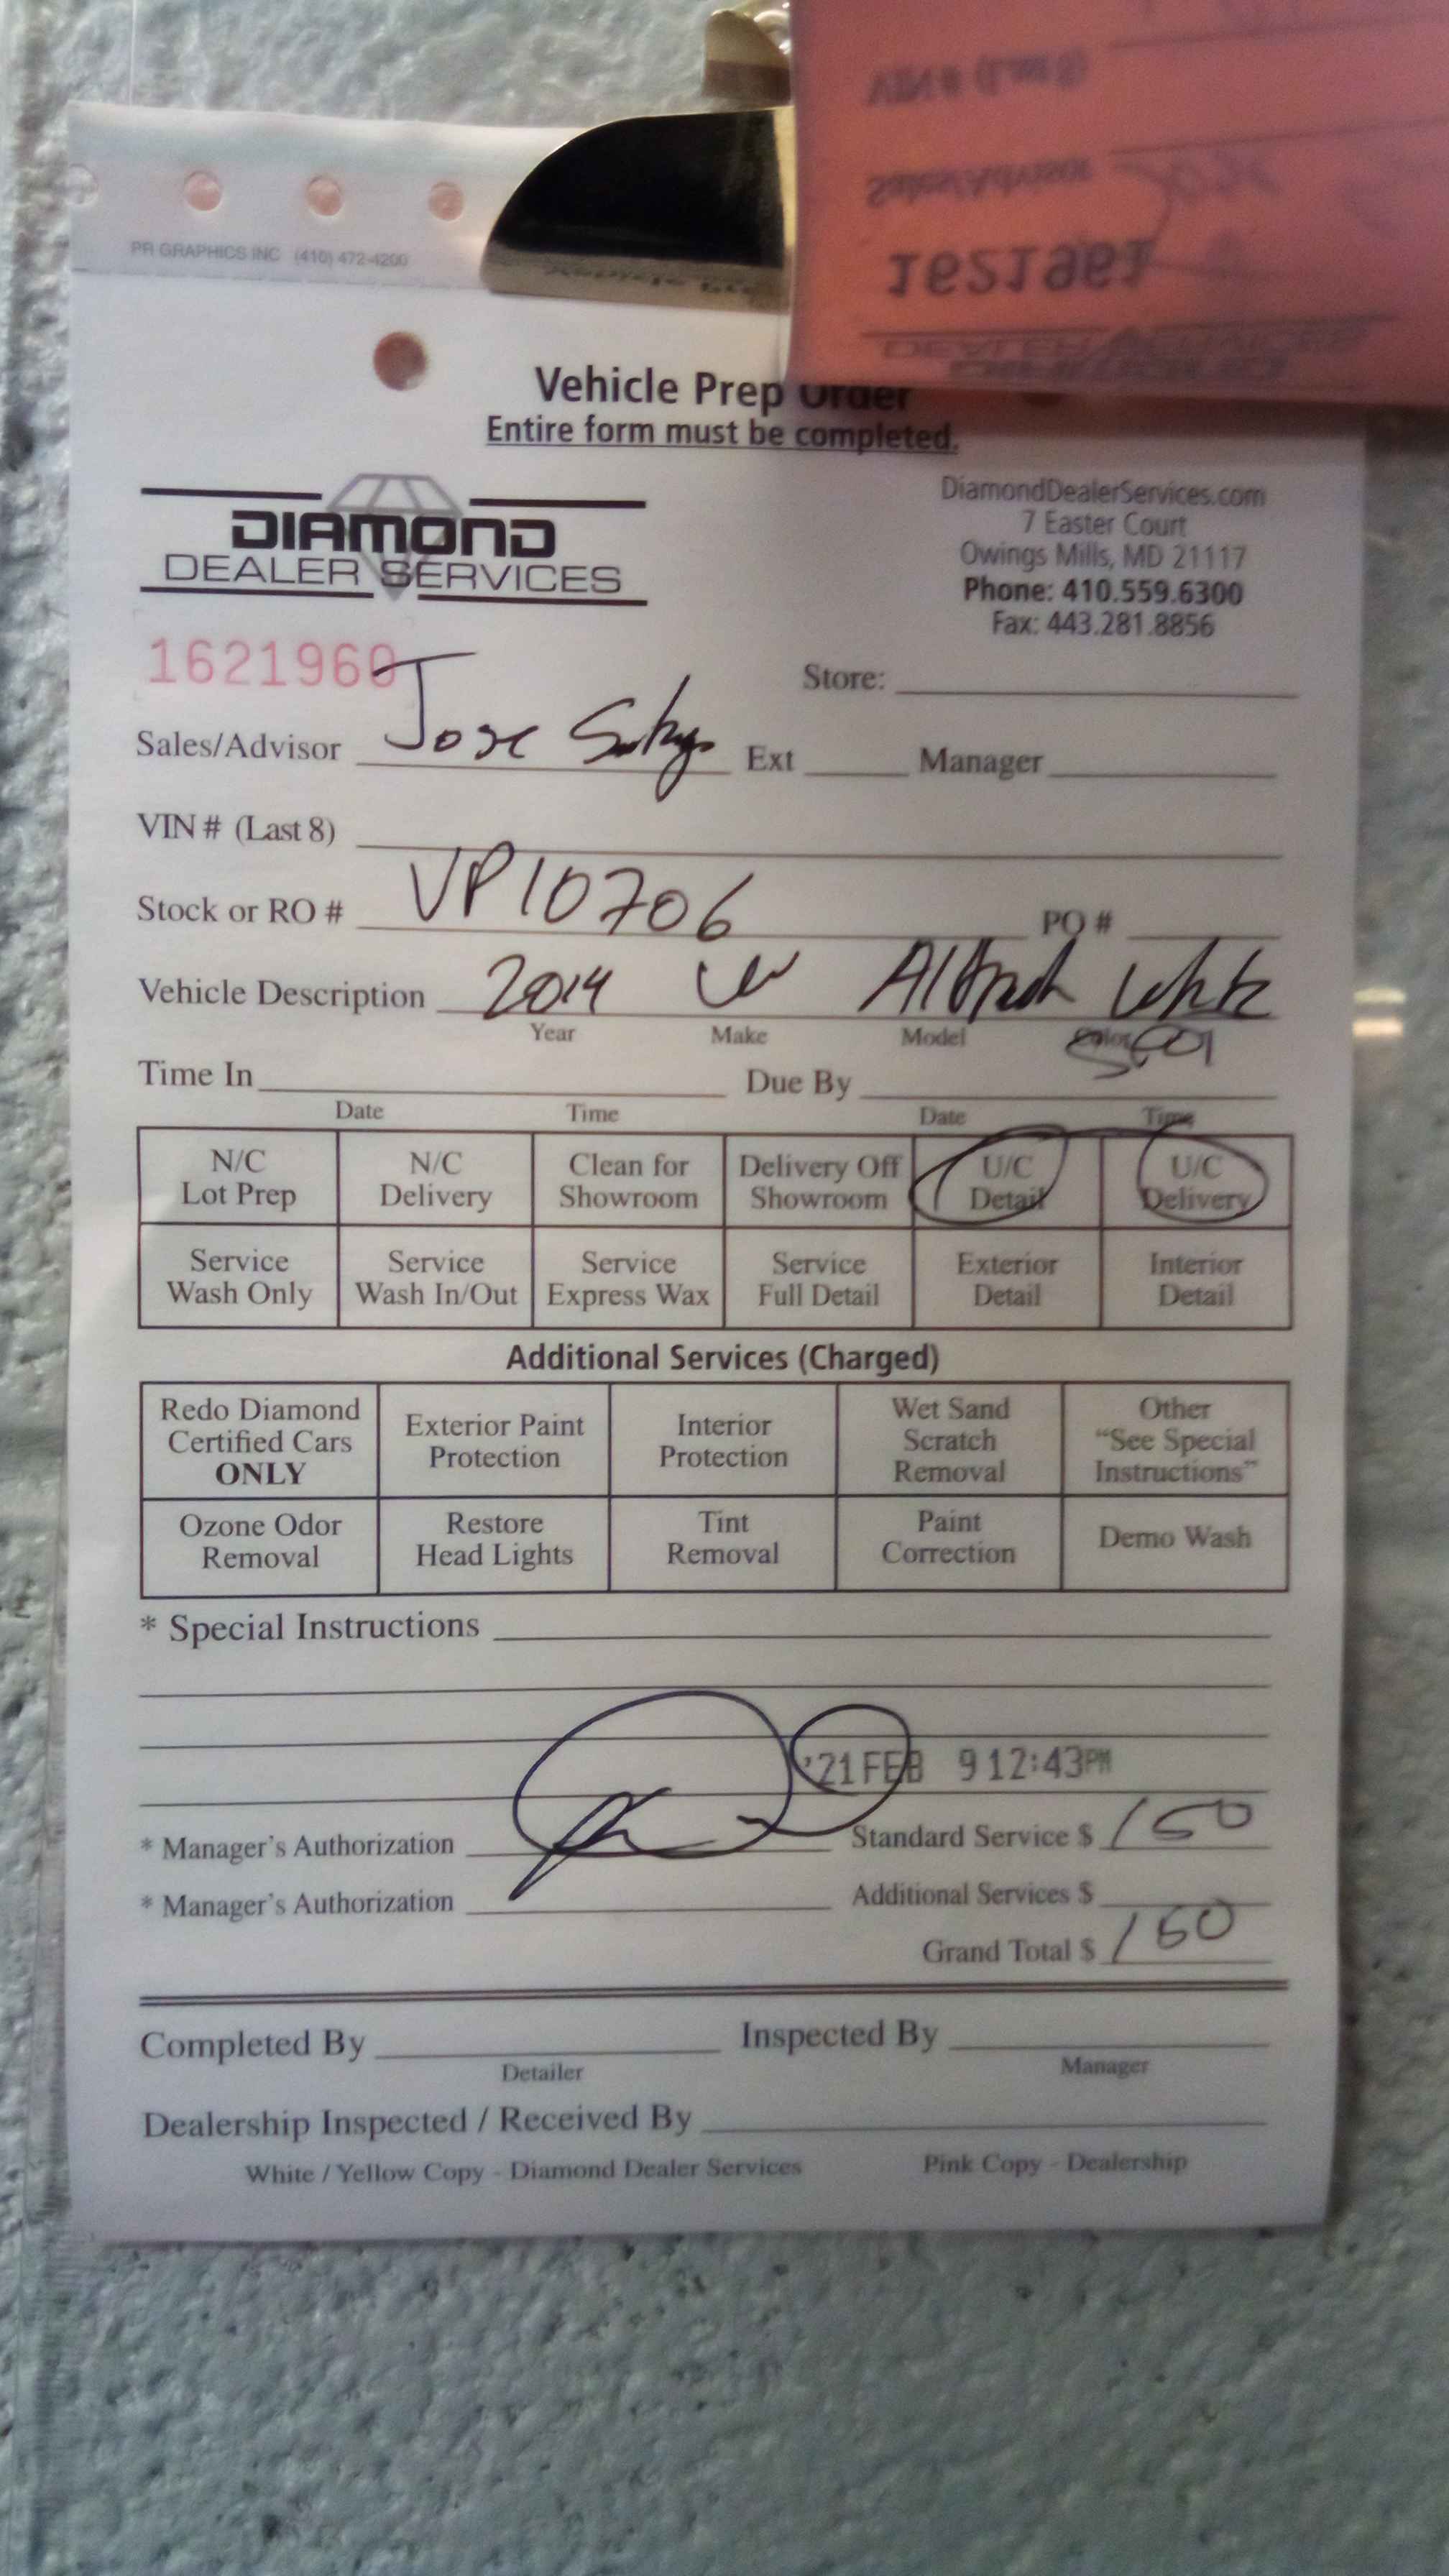 VIN # (Last 8)
Sales/Advisor
1621961
DEALER SERVICES
PR GRAPHICS INC (410) 472-4200
Vehicle Prep Order
Entire form must be completed.
DIAMOND
DEALER SERVICES
DiamondDealerServices.com
7 Easter Court
Owings Mills, MD 21117
Phone: 410.559.6300
Fax: 443.281.8856
1621960
Store:
Sales/Advisor Jose Ext Manager
VIN # (Last 8)
Stock or RO # VP10706 PO #
Vehicle Description 2014 White
Year Make Model Color
Time In Due By
Date Time Date Time
N/C Lot Prep N/C Delivery Clean for Showroom Delivery Off Showroom U/C Detail U/C Delivery
Service Wash Only Service Wash In/Out Service Express Wax Service Full Detail Exterior Detail Interior Detail
Additional Services (Charged)
Redo Diamond Certified Cars ONLY Exterior Paint Protection Interior Protection Wet Sand Scratch Removal Other "See Special Instructions"
Ozone Odor Removal Restore Head Lights Tint Removal Paint Correction Demo Wash
* Special Instructions
'21 FEB 9 12:43PM
* Manager's Authorization Standard Service $ 150
* Manager's Authorization Additional Services $
Grand Total $ 150
Completed By Inspected By
Detailer Manager
Dealership Inspected / Received By
White / Yellow Copy - Diamond Dealer Services Pink Copy - Dealership